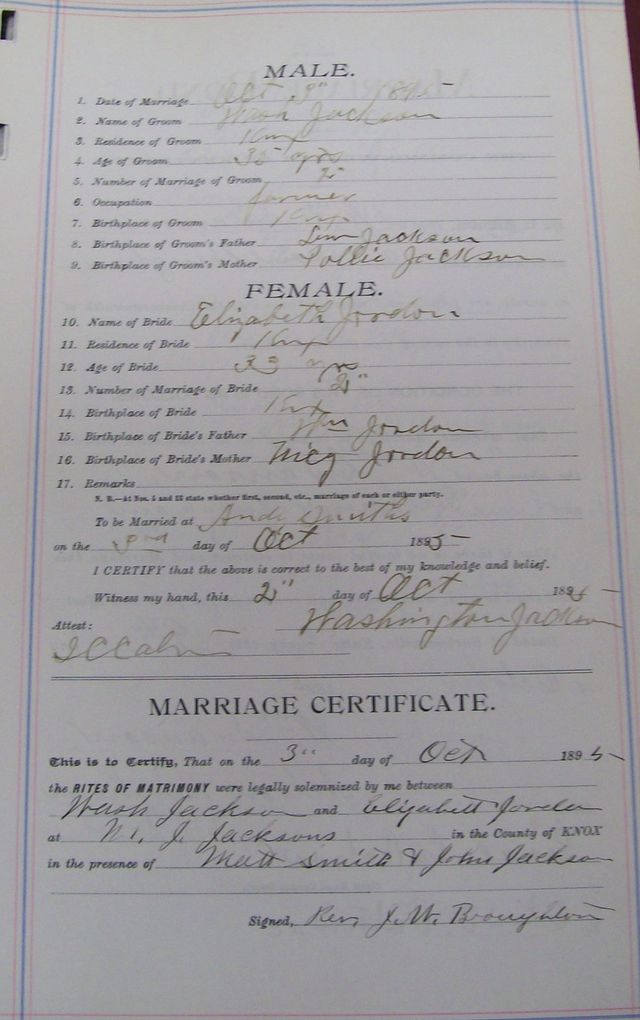 MALE.
1. Date of Marriage Oct 3" 1895
2. Name of Groom Wash Jackson
3. Residence of Groom Knx
4. Age of Groom 35 yrs
5. Number of Marriage of Groom 2"
6. Occupation farmer
7. Birthplace of Groom Knx
8. Birthplace of Groom's Father Jackson
9. Birthplace of Groom's Mother Pollie Jackson
FEMALE.
10. Name of Bride Elizabeth Jordon
11. Residence of Bride Knx
12. Age of Bride 33 yrs
13. Number of Marriage of Bride 2"
14. Birthplace of Bride Knx
15. Birthplace of Bride's Father Wm Jordon
16. Birthplace of Bride's Mother Jordon
17. Remarks
N. B.—At Nos. 5 and 13 state whether first, second, etc., marriage of each or either party.
To be Married at Andy Smiths
on the 3rd day of Oct 1895
I CERTIFY that the above is correct to the best of my knowledge and belief.
Witness my hand, this 2" day of Oct 1895
Attest: Washington Jackson
MARRIAGE CERTIFICATE.
This is to Certify, That on the 3" day of Oct 1895
the RITES OF MATRIMONY were legally solemnized by me between
Wash Jackson and Elizabett Jordon
at Jacksons in the County of KNOX
in the presence of Matt Smith & John Jackson
Signed, Rev, J. W. Broughton